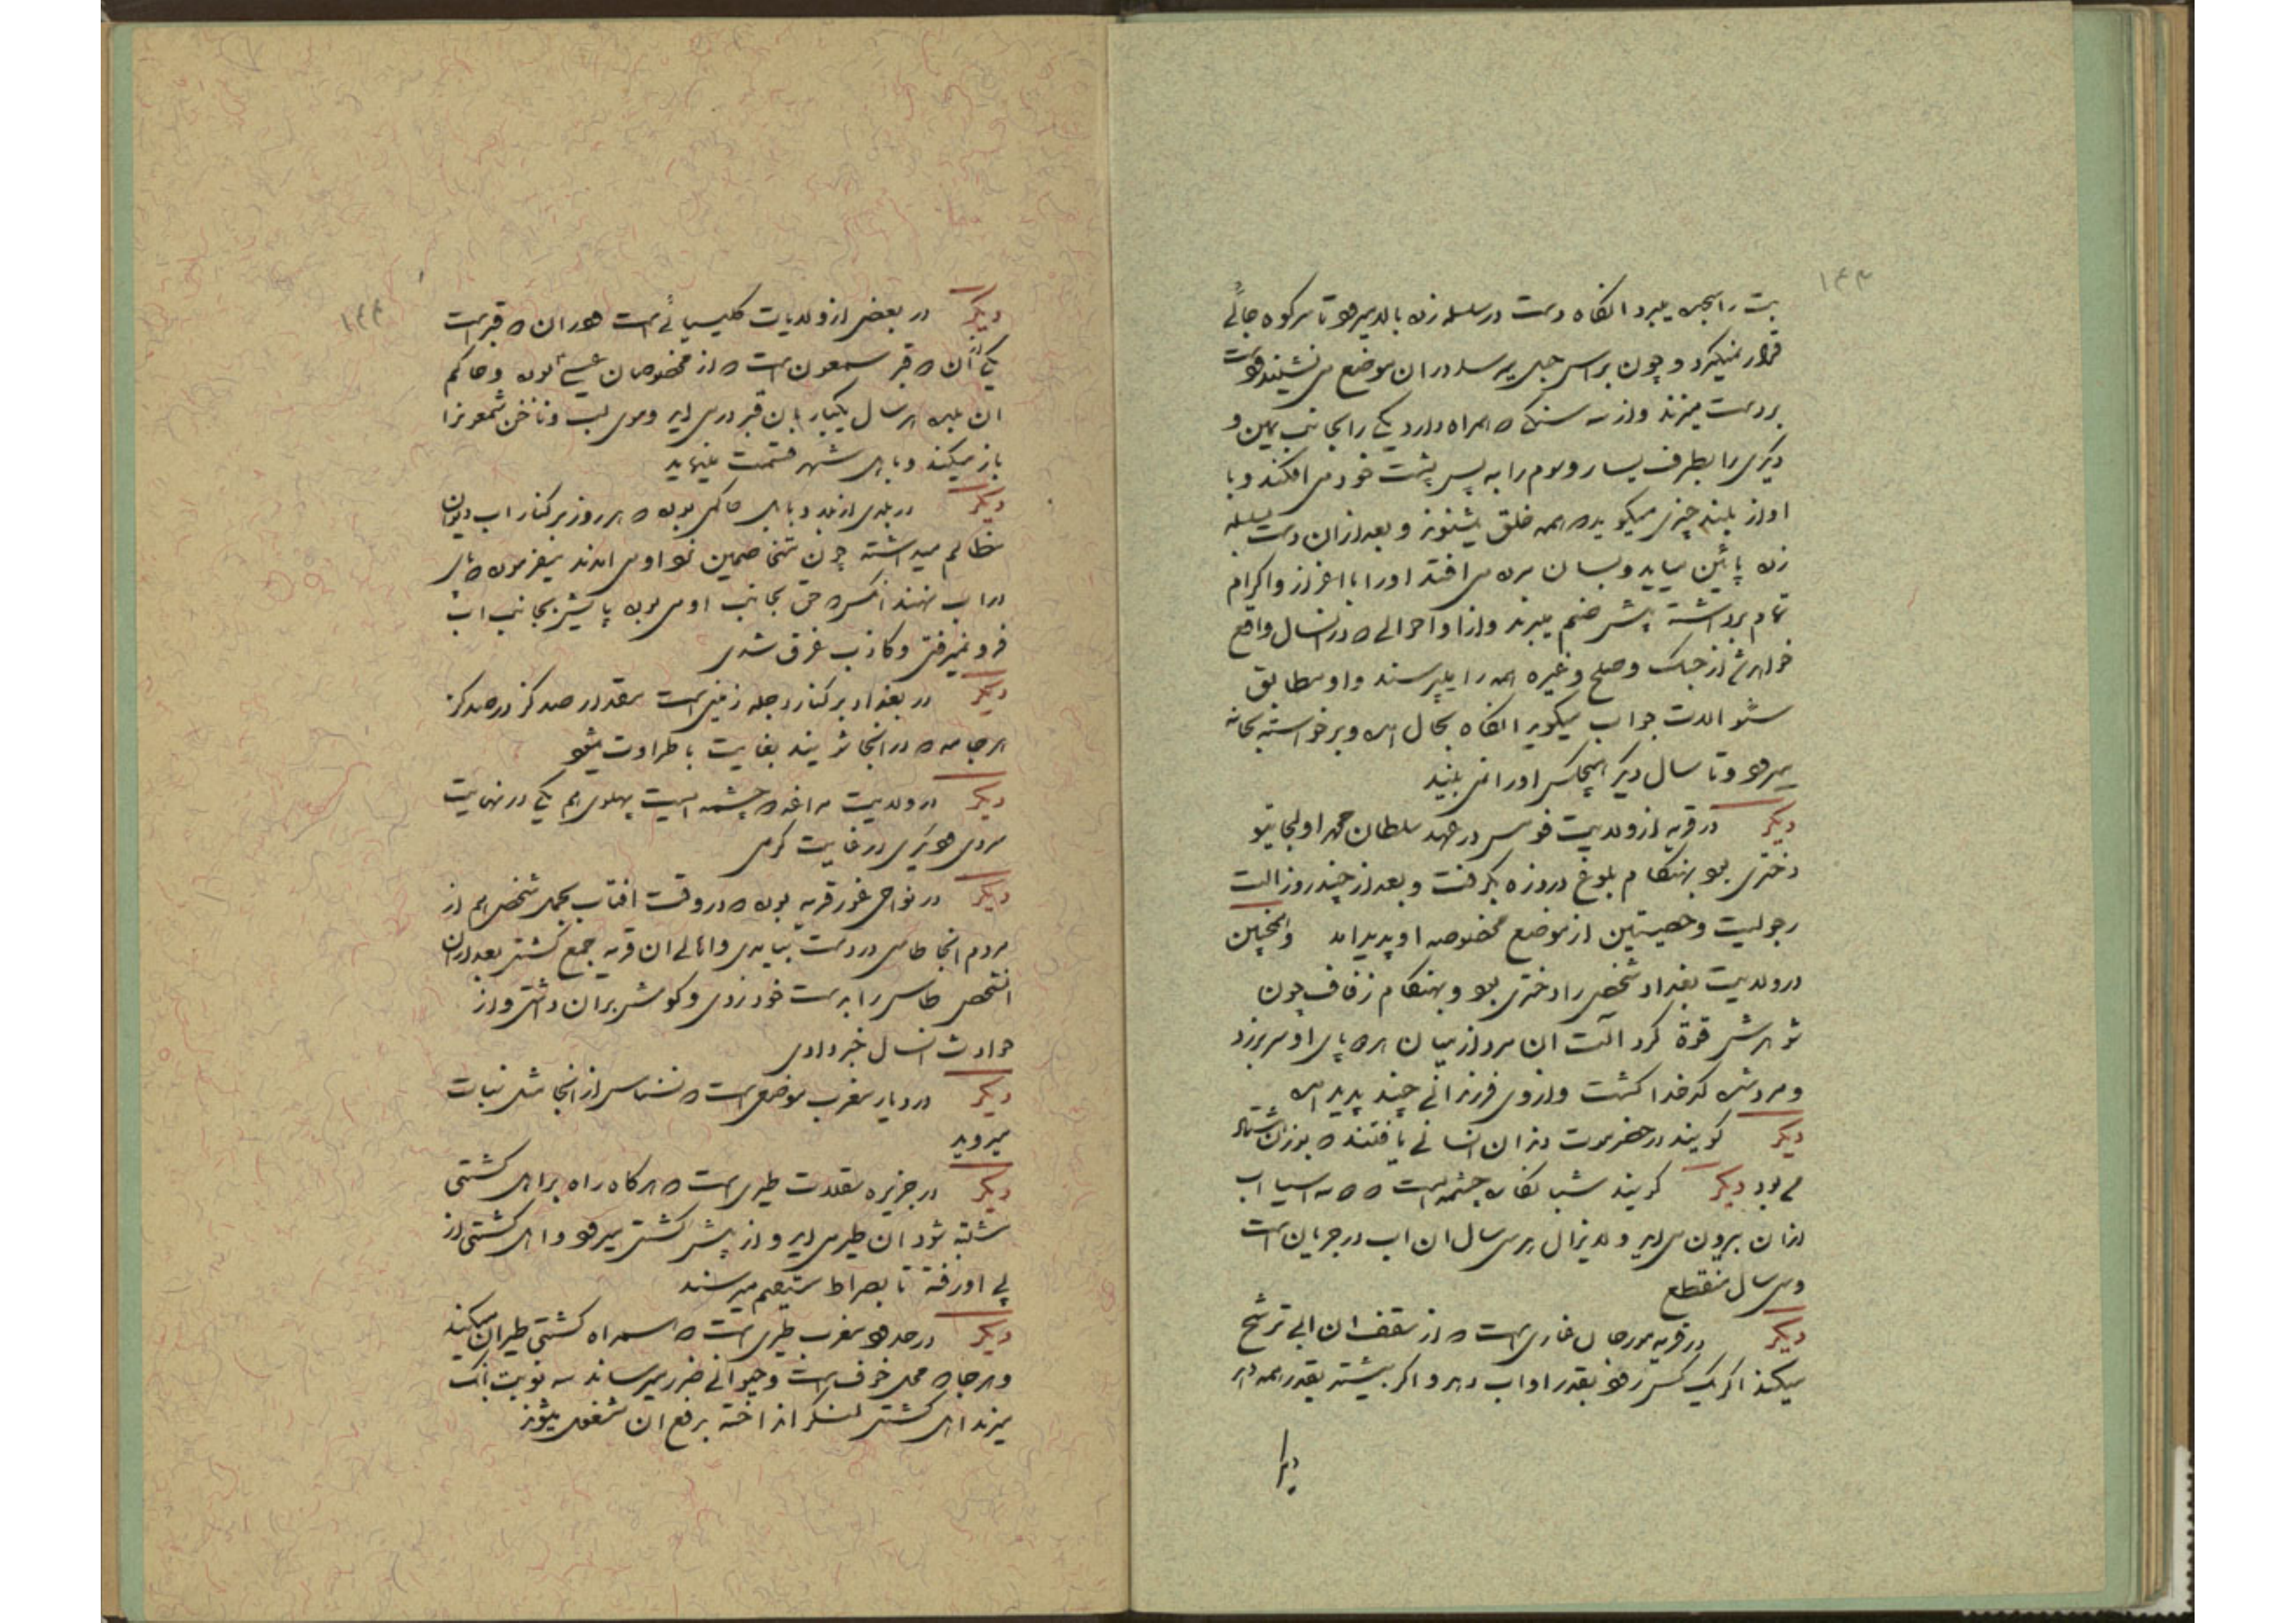 ۱۴۳
بت را سجده میبرد انکاه دست در سلسله زده بالا میرود تا سر کوه جائی
قرار نمیکیرد و چون براس جبل میرسد در ان موضع می نشیند و دست
بر دست میزند و از سه سنک که همراه دارد یکی را بجانب یمین و
دیکری را بطرف یسار و سوم را به پس پشت خود می افکند و با
اواز بلند چیزی میکوید که همه خلق بشنوند و بعد از ان دست سلسله
زده پائین میاید و بسان مرده می افتد او را با اعزاز و اکرام
تمام برداشته پیش صنم میبرند و از او احوالی که در انسال واقع
خواهد شد از جنک و صلح و غیره همه را میپرسند و او مطابق
سئوالات جواب میکوید انکاه بحال امده و برخواسته بخانه
میرود و تا سال دیکر هیچکس او را نمی بیند
دیکر در قریه از ولایت قومس در عهد سلطان محمد اولجایتو
دختری بود بهنکام بلوغ درد زه بکرفت و بعد از چند روز الت
رجولیت و خصیتین از موضع مخصوصه او پدید امد و همچنین
در ولایت بغداد شخصی را دختری بود و بهنکام زفاف چون
شوهرش قوة کرد آلت ان مرد از میان هر دو پای او سر برزد
و مرد شده کدخدا کشت و از وی فرزندانی چند پدید امد
دیکر کویند در حضرموت دندان انسانی یافتند که بوزن هشتاد
می بود دیکر کویند شبانکاره چشمه ایست که دو سه اسیا اب
از ان بیرون می اید و لایزال سی سال ان اب در جریان است
و سی سال منقطع
دیکر در قریه مورجان غاری است که از سقف ان ابی ترشح
میکند اکر یک کس رود بقدر او اب دهد و اکر بیشتر بقدر همه دهد
دیکر
۱۴۴
دیکر در بعضی از ولایات کلیسیائی است که در ان دو قبر است
یکی از ان دو قبر سمعون است که از مخصوصان عیسی بوده و حاکم
ان بلده هر سال یکبار بان قبر در می اید و موی لب و ناخن شمعونرا
باز میکند و باهل شهر قسمت مینماید
دیکر در بلدی از بلاد بابل حاکمی بوده که هر روز بر کنار اب دیوان
مظالم میداشته چون متخاصمین نزد او می امدند میفرموده که پای
در اب نهند انکس که حق بجانب او می بوده پایش بجانب اب
فرو نمیرفتی و کاذب غرق شدی
دیکر در بغداد بر کنار دجله زمینی است بمقدار صد کز در صد کز
هر جامه که در انجا شویند بغایت با طراوت میشود
دیکر در ولایت مراغه دو چشمه ایست پهلوی هم یکی در نهایت
سردی و دیکری در غایت کرمی
دیکر در نواحی غور قریه بوده که در وقت افتاب بحمل شخصی هم از
مردم انجا طاسی در دست بیامدی و اهالی ان قریه جمع کشتی بعد از ان
انشخص طاس را بدست خود زدی و کوش بر ان داشتی و از
حوادث انسال خبر دادی
دیکر در دیار مغرب موضعی است که نسناس از انجا مثل نبات
میروید
دیکر در جزیره سقلات طیری است که هرکاه راه بر اهل کشتی
مشتبه شود ان طیر می اید و از پیش کشتی میرود و اهل کشتی از
پی او رفته تا بصراط مستقیم میرسند
دیکر در حدود مغرب طیری است که همراه کشتی طیران میکند
و هر جا که محل خوف است و حیوانی ضرر میرساند سه نوبت بانک
میزند اهل کشتی لنکر انداخته برفع ان مشغول میشوند